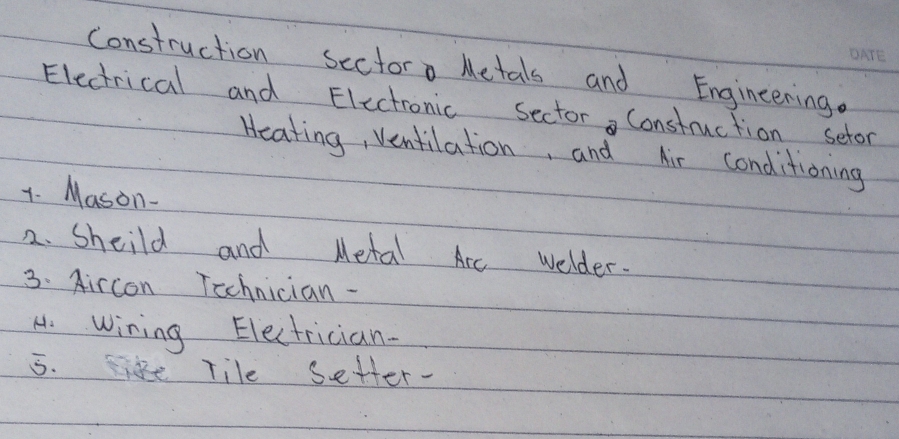 DATE
Construction Sector Metals and Engineering.
Electrical and Electronic Sector Construction setor
Heating, Ventilation, and Air Conditioning
1. Mason-
2. Sheild and Metal Arc Welder-
3. Aircon Technician-
4. Wiring Electrician-
5. Tile Setter-